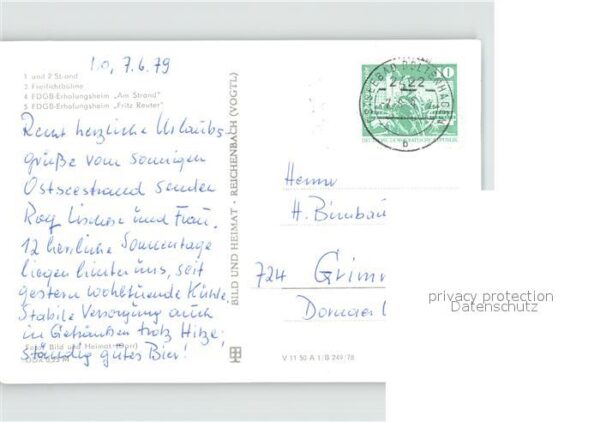 z.o, 7.6.79
1 und 2 Strand
3 Freilichtbühne
4 FDGB-Erholungsheim „Am Strand"
5 FDGB-Erholungsheim „Fritz Reuter"
Recht herzliche Urlaubs-
grüße vom sonnigen
Ostseestrand senden
und Frau.
12 herrliche Sonnentage
liegen hinter uns, seit
gestern wohltuende Kühle,
Stabile Versorgung auch
in Getränken trotz Hitze;
Ständig gutes Bier!
Foto: Bild und Heimat
BILD UND HEIMAT · REICHENBACH (VOGTL)
V 11 50 A 1/B 249/78
OSTSEEBAD BOLTENHAGEN
2422
b
10
DEUTSCHE DEMOKRATISCHE REPUBLIK
Herrn
H. Birnbau
724 Grimm
privacy protection
Datenschutz